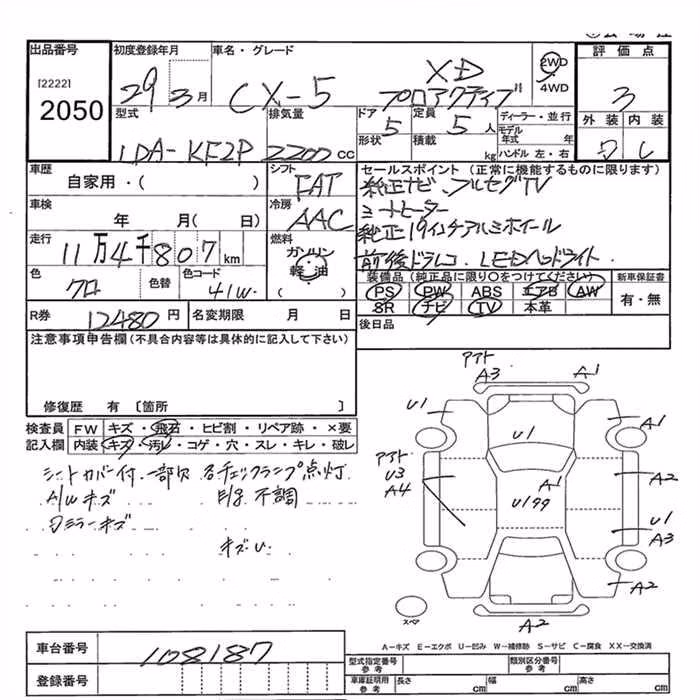 出品番号
[2222]
2050
初度登録年月
29 3月
車名・グレード
CX-5 XD
プロアクティブ
2WD
4WD
評価点
3
外装 内装
型式
LDA-KF2P
排気量
2200cc
ドア
5
形状
定員
5人
積載
kg
ディーラー・並行
モデル年式 年
ハンドル 左・右
車歴
自家用・( )
シフト
FAT
セールスポイント(正常に機能するものに限ります)
純正ナビ、フルセグTV
シートヒーター
純正19インチアルミホイール
前後ドラレコ、LEDヘッドライト
車検
年 月( 日)
冷房
AAC
走行
11万4千807km
燃料
ガソリン
軽油
( )
色
クロ
色替
色コード
41W
装備品(純正品に限り○をつけてください)
PS PW ABS エアB AW
SR ナビ TV 本革
新車保証書
有・無
R券
12480円
名変期限 月 日
後日品
注意事項申告欄(不具合内容等は具体的に記入して下さい)
修復歴 有 〔箇所 〕
検査員記入欄
FW キズ・飛石・ヒビ割・リペア跡・×要
内装 キズ・汚レ・コゲ・穴・スレ・キレ・破レ
シートカバー付、一部欠 各チェックランプ点灯
A/Wキズ 不調
ミラーキズ
キズU
アアト
A3 A1
U1 U1 A1
アアト
U3
A4
A1
U177
A2
U1
A3
A2
A2
スペア
A-キズ E-エクボ U-凹み W-補修跡 S-サビ C-腐食 XX-交換済
車台番号
108187
登録番号
型式指定番号 参考
類別区分番号 参考
車庫証明用 参考
長さ cm 幅 cm 高さ cm